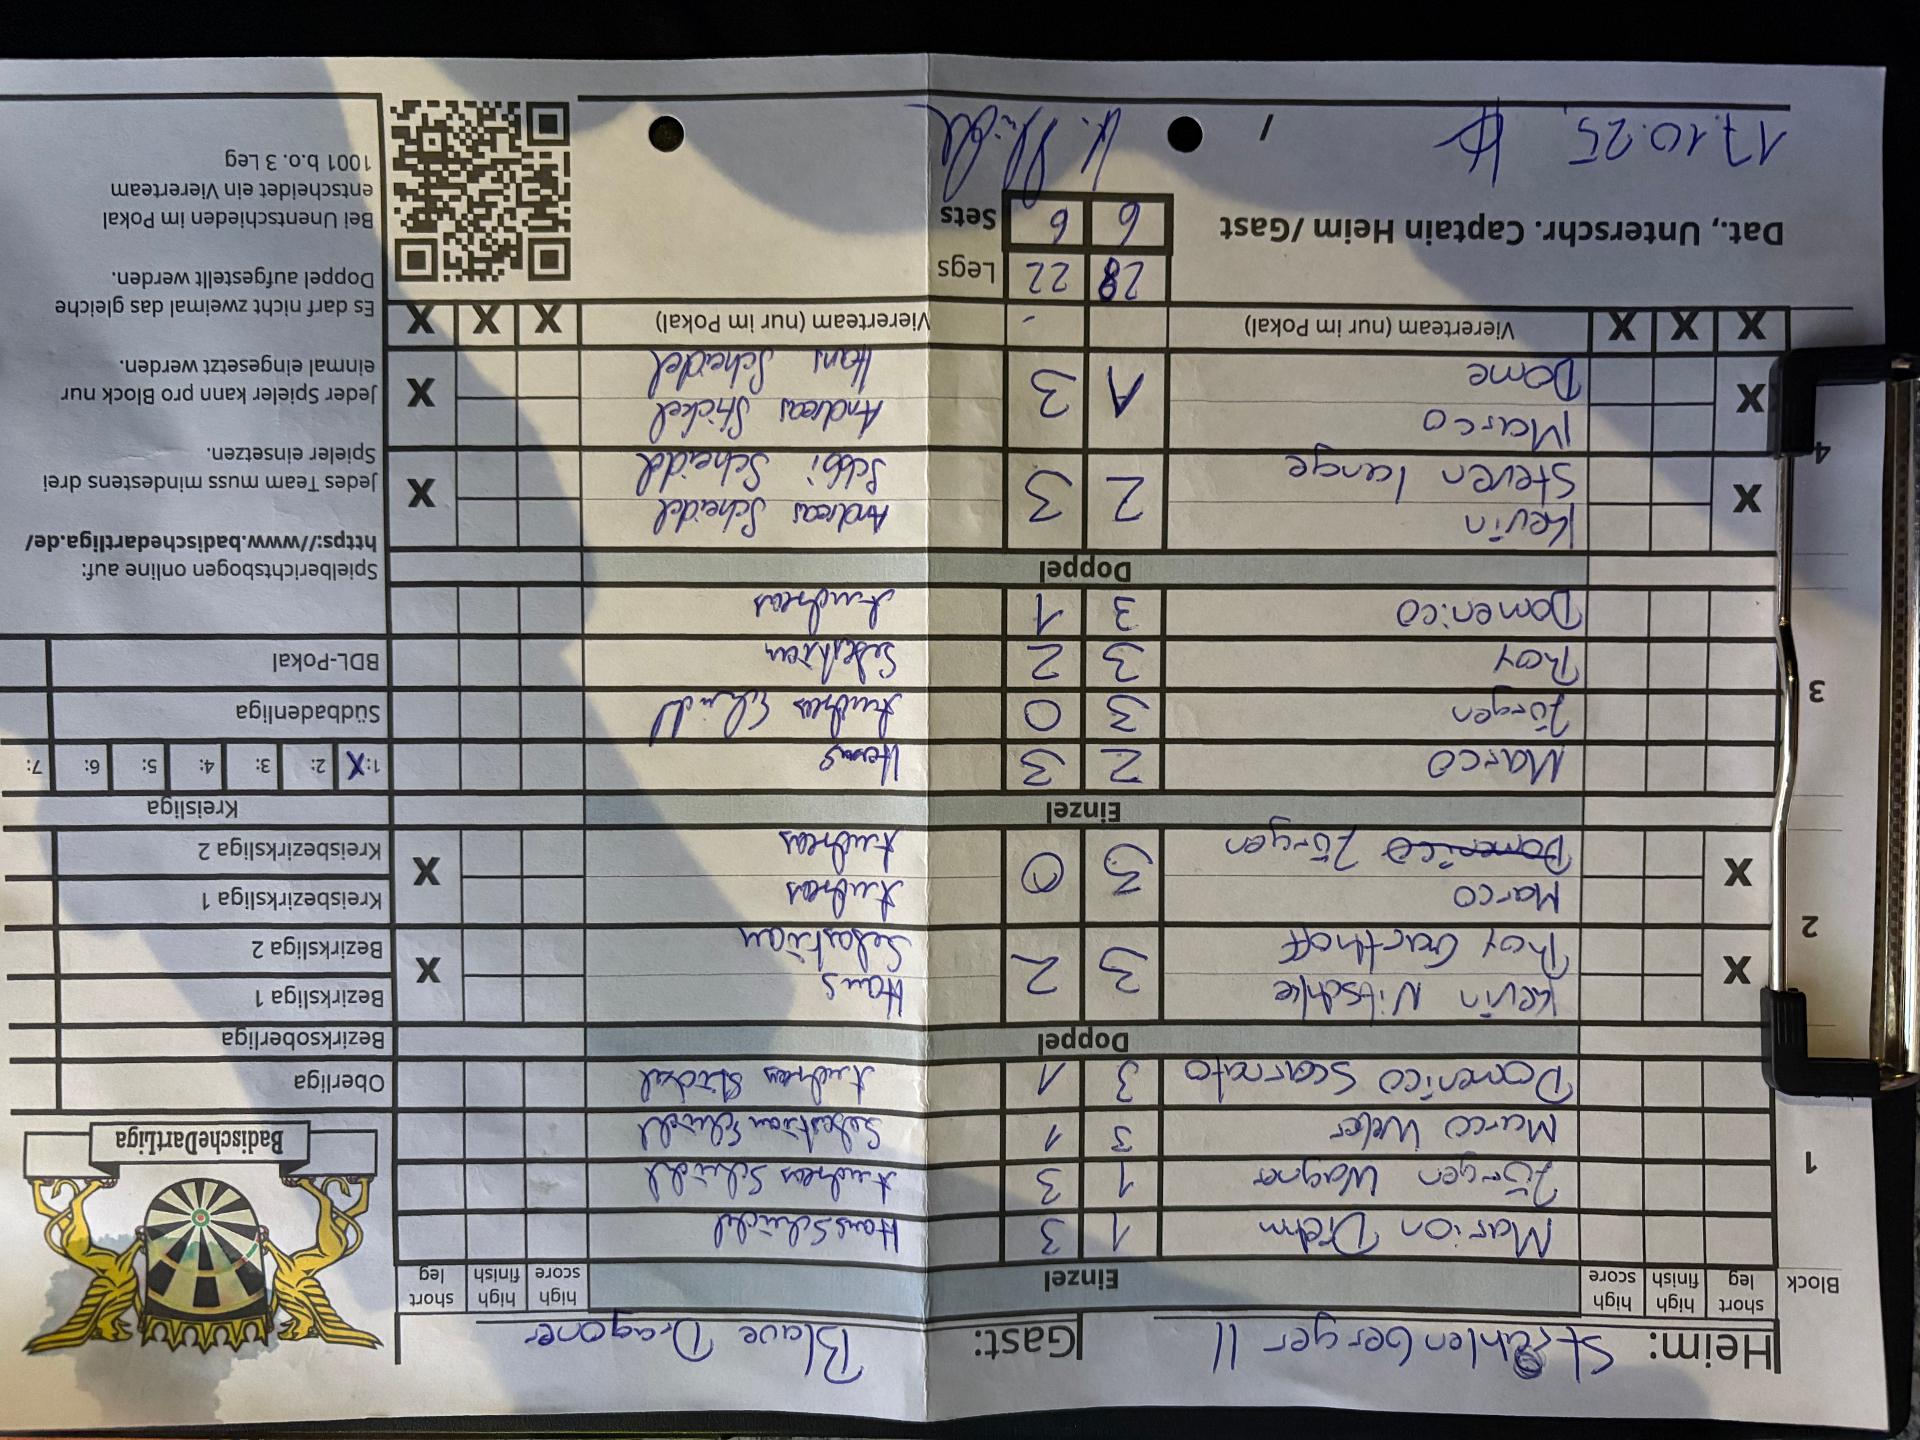 Heim: Strahlenberger II Gast: Blaue Dragoner
BadischeDartLiga
Block short leg high finish high score Einzel high score high finish short leg
1
Marion Drehm 1 3 Hans Scheidel
Jürgen Wagner 1 3 Andreas Scheidel
Marco Weber 3 1 Sebastian Scheidel
Domenico Scarnato 3 1 Andreas Stickel
Doppel
2
X Kevin Nitschke 3 2 Hans X
Troy Garthoff Sebastian
X Marco 3 0 Andreas X
Domenico Jürgen Andreas
Einzel
3
Marco 2 3 Hans
Jürgen 3 0 Andreas Scheidel
Troy 3 2 Sebastian
Domenico 3 1 Andreas
Doppel
4
X Kevin 2 3 Andreas Scheidel X
Steven Lange Sebbi Scheidel
X Marco 1 3 Andreas Stickel X
Dome Hans Scheidel
X X X Viererteam (nur im Pokal) - Viererteam (nur im Pokal) X X X
28 22 Legs
Dat., Unterschr. Captain Heim/Gast 6 6 Sets
17.10.25, /
Oberliga
Bezirksoberliga
Bezirksliga 1
Bezirksliga 2
Kreisbezirksliga 1
Kreisbezirksliga 2
Kreisliga
1: X 2: 3: 4: 5: 6: 7:
Südbadenliga
BDL-Pokal
Spielberichtsbogen online auf:
https://www.badischedartliga.de/
Jedes Team muss mindestens drei
Spieler einsetzen.
Jeder Spieler kann pro Block nur
einmal eingesetzt werden.
Es darf nicht zweimal das gleiche
Doppel aufgestellt werden.
Bei Unentschieden im Pokal
entscheidet ein Viererteam
1001 b.o. 3 Leg